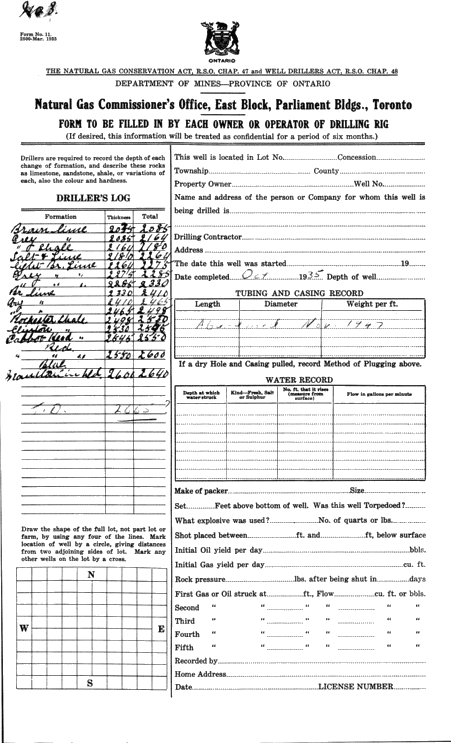 Form No. 11.
2500-Mar. 1933
ONTARIO
THE NATURAL GAS CONSERVATION ACT, R.S.O. CHAP. 47 and WELL DRILLERS ACT, R.S.O. CHAP. 48
DEPARTMENT OF MINES—PROVINCE OF ONTARIO
Natural Gas Commissioner's Office, East Block, Parliament Bldgs., Toronto
FORM TO BE FILLED IN BY EACH OWNER OR OPERATOR OF DRILLING RIG
(If desired, this information will be treated as confidential for a period of six months.)
Drillers are required to record the depth of each
change of formation, and describe these rocks
as limestone, sandstone, shale, or variations of
each, also the colour and hardness.
DRILLER'S LOG
Formation Thickness Total
Brown lime 2085
Grey " 2085 2164
" & Shale 2164 2180
Salt & Lime 2180 2264
Light Br. Lime 2264 2275
Grey " 2275 2285
2285 2330
Br. Lime 2330 2410
Gry 2410 2465
2465 2498
Rochester Shale 2498 2530
Clinton
Cabbot Head " 2550
Red
" " " 2550 2600
Blue
2600 2640
T.D. 2665
Draw the shape of the full lot, not part lot or
farm, by using any four of the lines. Mark
location of well by a circle, giving distances
from two adjoining sides of lot. Mark any
other wells on the lot by a cross.
N
W E
S
This well is located in Lot No. Concession
Township County
Property Owner Well No.
Name and address of the person or Company for whom this well is
being drilled is
Drilling Contractor
Address
The date this well was started 19
Date completed Oct 1935 Depth of well
TUBING AND CASING RECORD
Length Diameter Weight per ft.
Abandoned Nov. 1947
If a dry Hole and Casing pulled, record Method of Plugging above.
WATER RECORD
Depth at which water struck Kind—Fresh, Salt or Sulphur No. ft. that it rises (measure from surface) Flow in gallons per minute
Make of packer Size
Set Feet above bottom of well. Was this well Torpedoed?
What explosive was used? No. of quarts or lbs.
Shot placed between ft. and ft, below surface
Initial Oil yield per day bbls.
Initial Gas yield per day cu. ft.
Rock pressure lbs. after being shut in days
First Gas or Oil struck at ft., Flow cu. ft. or bbls.
Second " " " " " "
Third " " " " " "
Fourth " " " " " "
Fifth " " " " " "
Recorded by
Home Address
Date LICENSE NUMBER